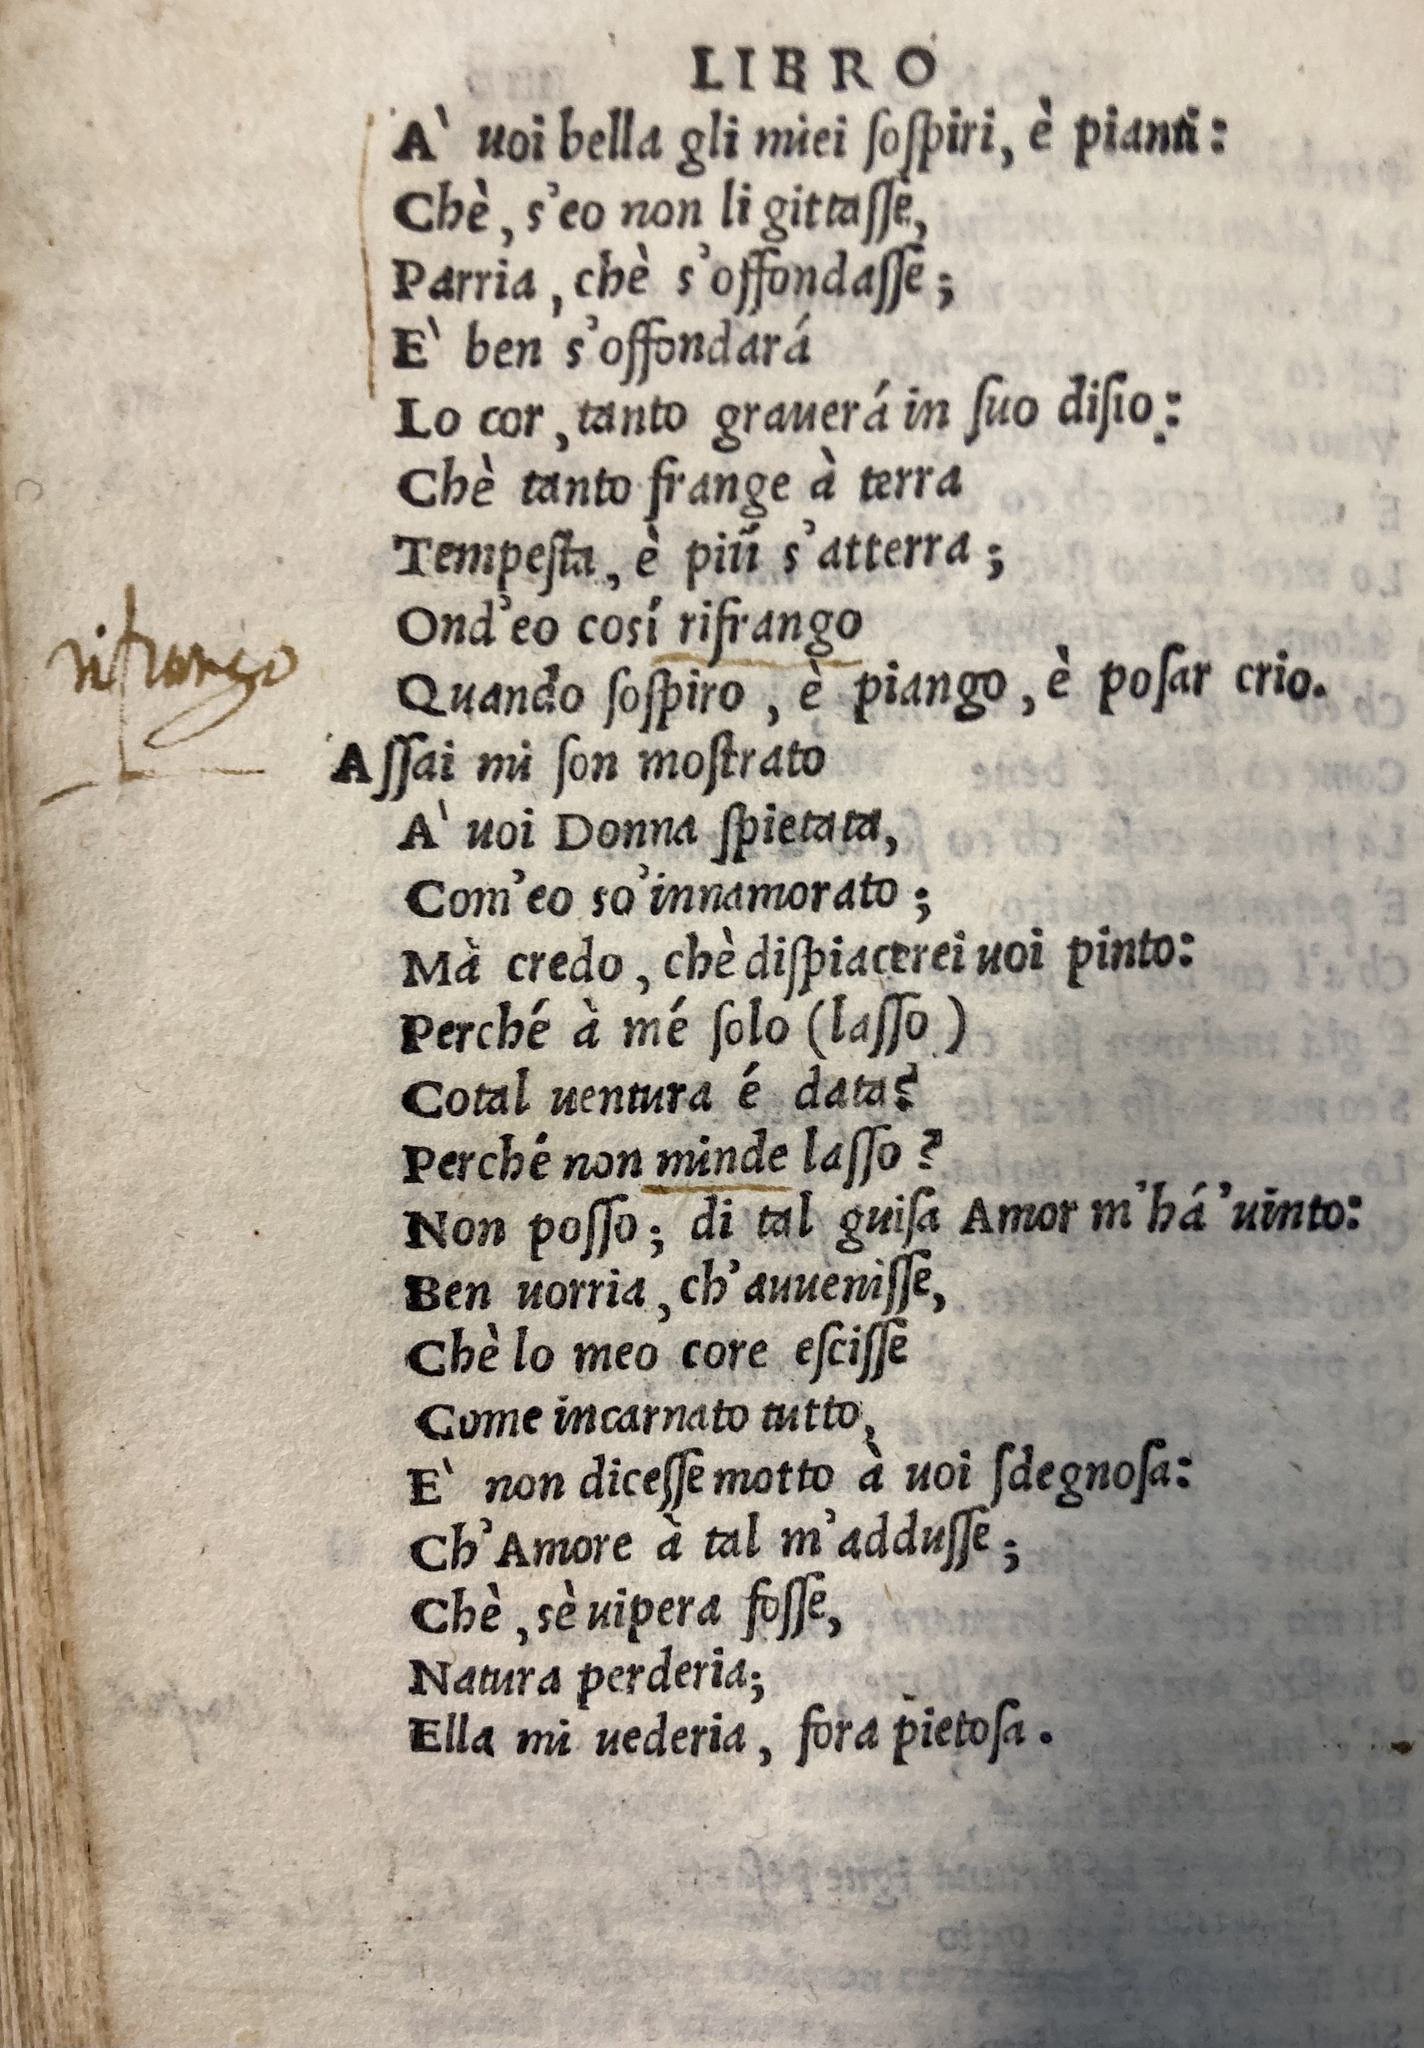 LIBRO
A' uoi bella gli miei ſoſpiri, è pianti:
Chè, s'eo non li gittaſſe,
Parria, chè s'offondaſſe;
E' ben s'offondará
Lo cor, tanto grauerá in ſuo diſio:
Chè tanto frange à terra
Tempeſta, è piú s'atterra;
Ond'eo cosí rifrango
rifrango
Quando ſoſpiro, è piango, è poſar crio.
Aſſai mi ſon moſtrato
A' uoi Donna ſpietata,
Com'eo so'innamorato;
Mà credo, chè diſpiacerei uoi pinto:
Perché à mé ſolo (laſſo)
Cotal uentura é data?
Perché non minde laſſo?
Non poſſo; di tal guiſa Amor m'há'uinto:
Ben uorria, ch'auueniſſe,
Chè lo meo core eſciſſe
Come incarnato tutto,
E' non diceſſe motto à uoi ſdegnoſa:
Ch'Amore à tal m'adduſſe;
Chè, sè uipera foſſe,
Natura perderia;
Ella mi uederia, fora pietoſa.